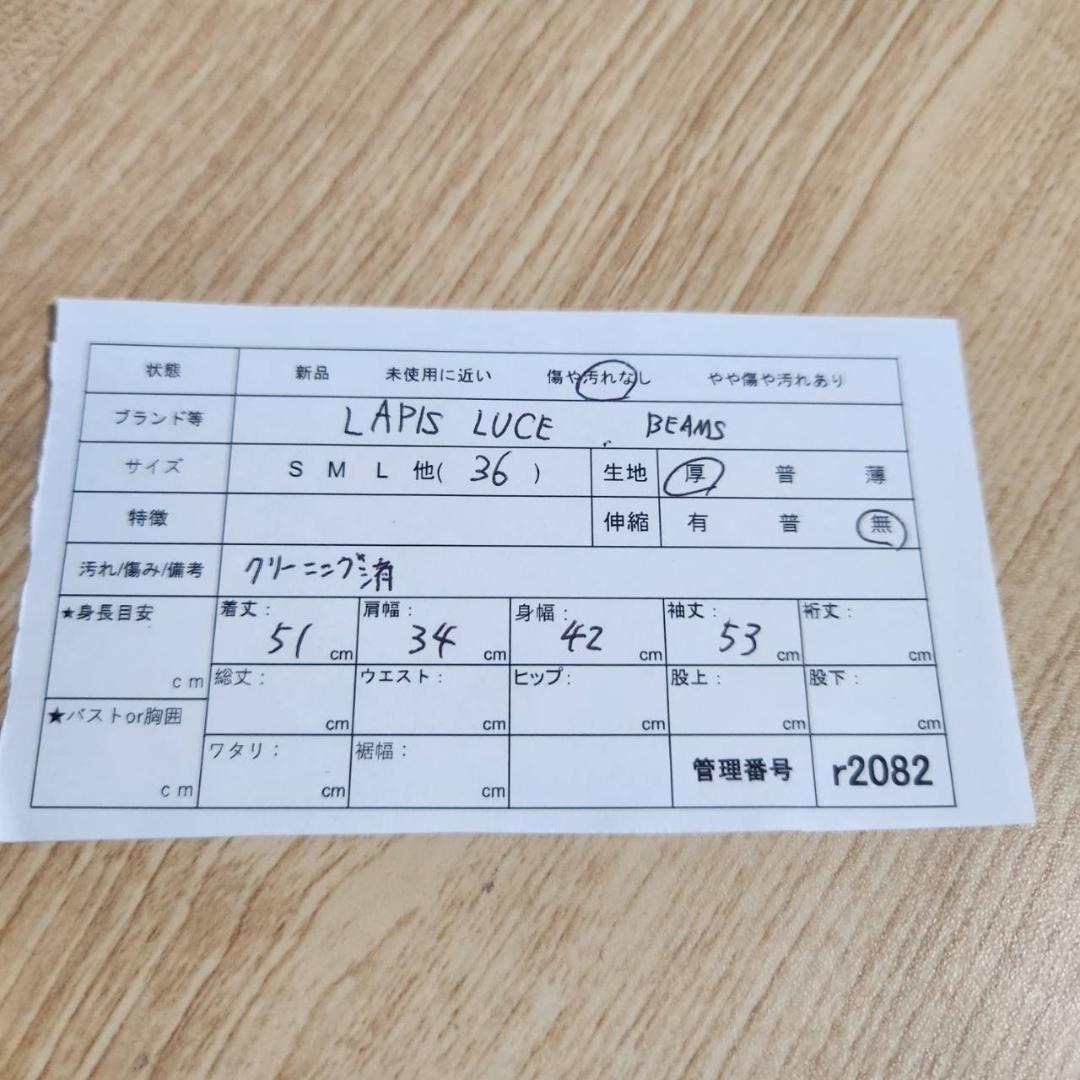 状態 新品 未使用に近い 傷や汚れなし やや傷や汚れあり
ブランド等 LAPIS LUCE . BEAMS
サイズ S M L 他( 36 ) 生地 厚 普 薄
特徴 伸縮 有 普 無
汚れ/傷み/備考 クリーニング済
★身長目安 cm 着丈: 51 cm 肩幅: 34 cm 身幅: 42 cm 袖丈: 53 cm 裄丈: cm
総丈: cm ウエスト: cm ヒップ: cm 股上: cm 股下: cm
★バストor胸囲 cm ワタリ: cm 裾幅: cm 管理番号 r2082